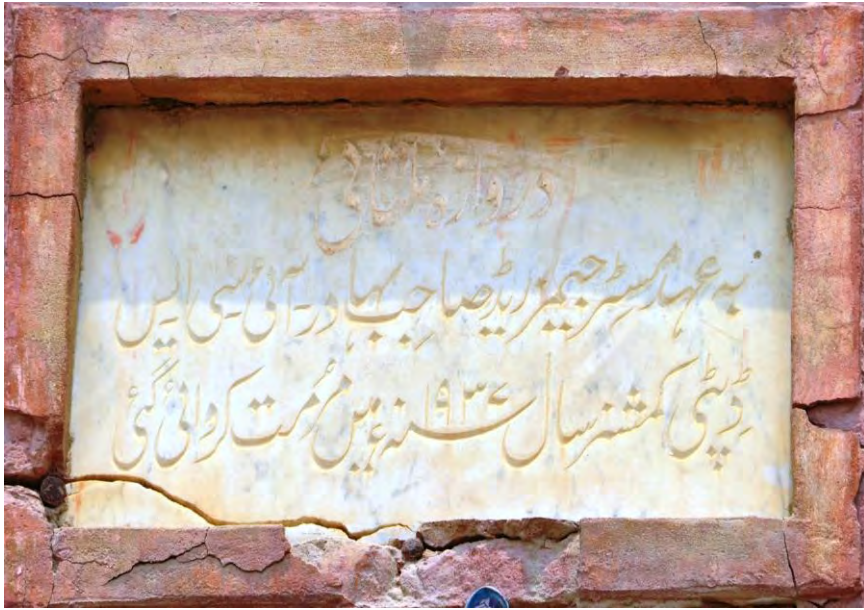 دروازہ ملتانی
بہ عہد مسٹر جیمز ریڈ صاحب بہادر آئی سی ایس
ڈپٹی کمشنر سال ۱۹۳۷ سنہء میں مرمت کروائی گئی